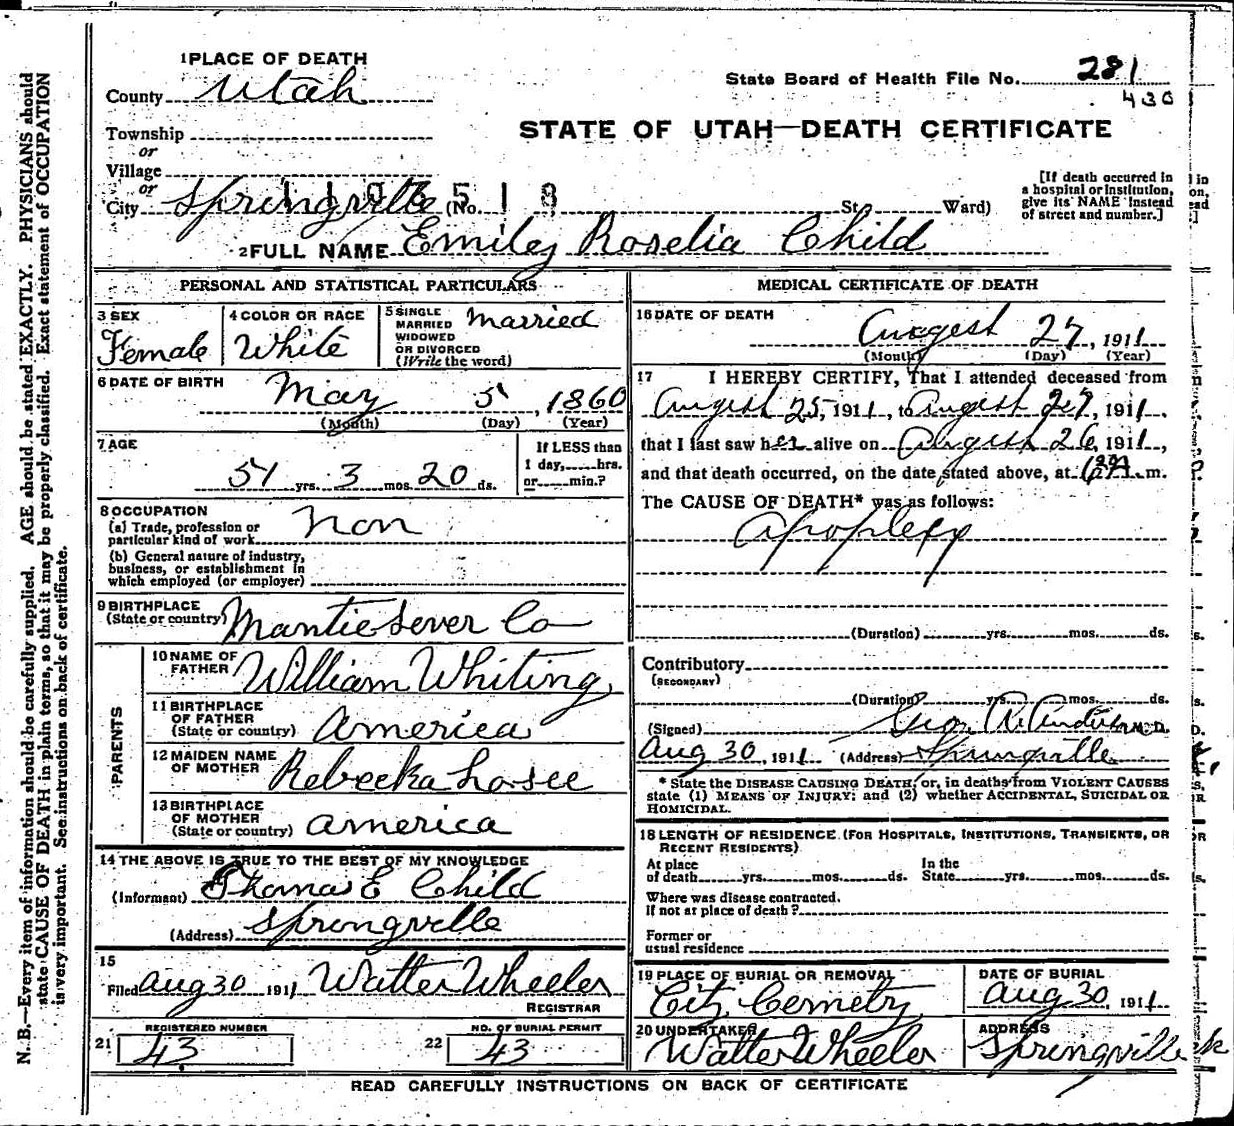 1 PLACE OF DEATH
County Utah
State Board of Health File No. 281
430
Township
or
STATE OF UTAH—DEATH CERTIFICATE
Village
or
City Springville (No. St. Ward)
[If death occurred in a hospital or institution, give its NAME instead of street and number.]
2 FULL NAME Emily Roselia Child
PERSONAL AND STATISTICAL PARTICULARS
3 SEX Female
4 COLOR OR RACE White
5 SINGLE MARRIED WIDOWED OR DIVORCED (Write the word) Married
6 DATE OF BIRTH May 5, 1860
(Month) (Day) (Year)
7 AGE 51 yrs. 3 mos. 20 ds.
If LESS than 1 day, hrs. or min.?
8 OCCUPATION
(a) Trade, profession or particular kind of work non
(b) General nature of industry, business, or establishment in which employed (or employer)
9 BIRTHPLACE (State or country) Mantie Sever Co
PARENTS
10 NAME OF FATHER William Whiting
11 BIRTHPLACE OF FATHER (State or country) America
12 MAIDEN NAME OF MOTHER Rebecka Losee
13 BIRTHPLACE OF MOTHER (State or country) america
14 THE ABOVE IS TRUE TO THE BEST OF MY KNOWLEDGE
(Informant) Thomas E Child
(Address) Springville
15 Filed Aug 30 1911 Walter Wheeler
REGISTRAR
21 REGISTERED NUMBER 43
22 NO. OF BURIAL PERMIT 43
MEDICAL CERTIFICATE OF DEATH
16 DATE OF DEATH Augest 27, 1911
(Month) (Day) (Year)
17 I HEREBY CERTIFY, That I attended deceased from
Augest 25, 1911, to Augest 27, 1911.
that I last saw her alive on Augest 26, 1911,
and that death occurred, on the date stated above, at m.
The CAUSE OF DEATH* was as follows:
apoplexy
(Duration) yrs. mos. ds.
Contributory
(SECONDARY)
(Duration) yrs. mos. ds.
(Signed) Geo. R. Anderson M. D.
Aug 30, 1911 (Address) Springville
* State the DISEASE CAUSING DEATH, or, in deaths from VIOLENT CAUSES
state (1) MEANS OF INJURY; and (2) whether ACCIDENTAL, SUICIDAL OR
HOMICIDAL.
18 LENGTH OF RESIDENCE (FOR HOSPITALS, INSTITUTIONS, TRANSIENTS, OR
RECENT RESIDENTS)
At place of death yrs. mos. ds. In the State yrs. mos. ds.
Where was disease contracted,
If not at place of death?
Former or
usual residence
19 PLACE OF BURIAL OR REMOVAL City Cemetry
DATE OF BURIAL Aug 30, 1911
20 UNDERTAKER Walter Wheeler
ADDRESS Springville
READ CAREFULLY INSTRUCTIONS ON BACK OF CERTIFICATE
N. B.—Every item of information should be carefully supplied. AGE should be stated EXACTLY. PHYSICIANS should
state CAUSE OF DEATH in plain terms, so that it may be properly classified. Exact statement of OCCUPATION
is very important. See instructions on back of certificate.